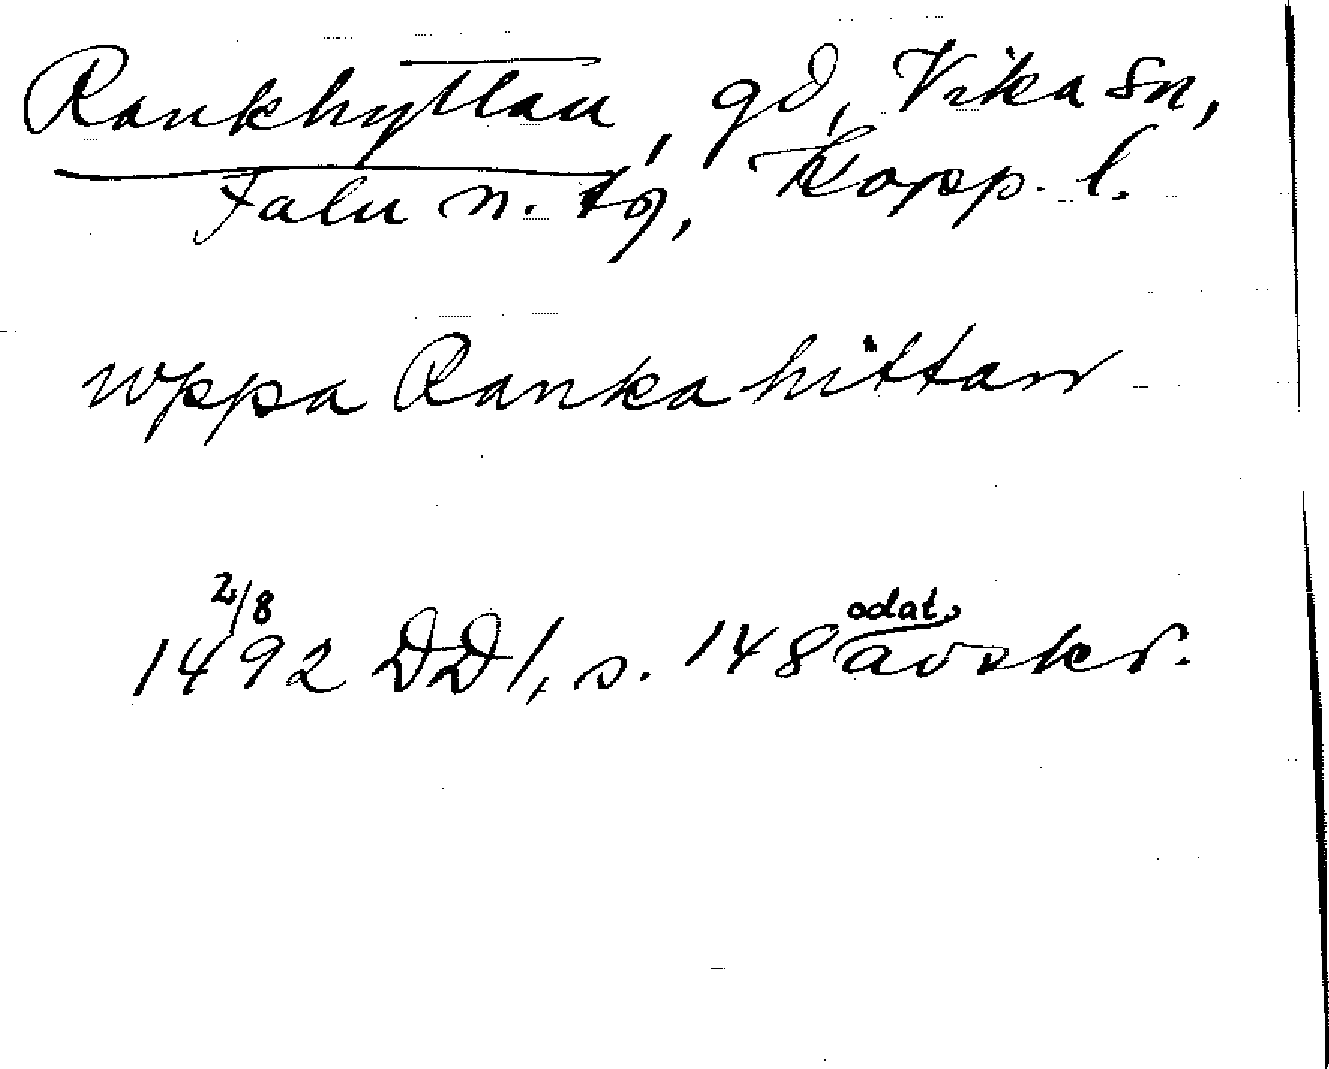 Rankhyttan, gd, Vika sn,
Falu n. tg, Kopp. l.
wppa Rankahittan
2/8
1492 DD 1, s. 148 odat. avskr.